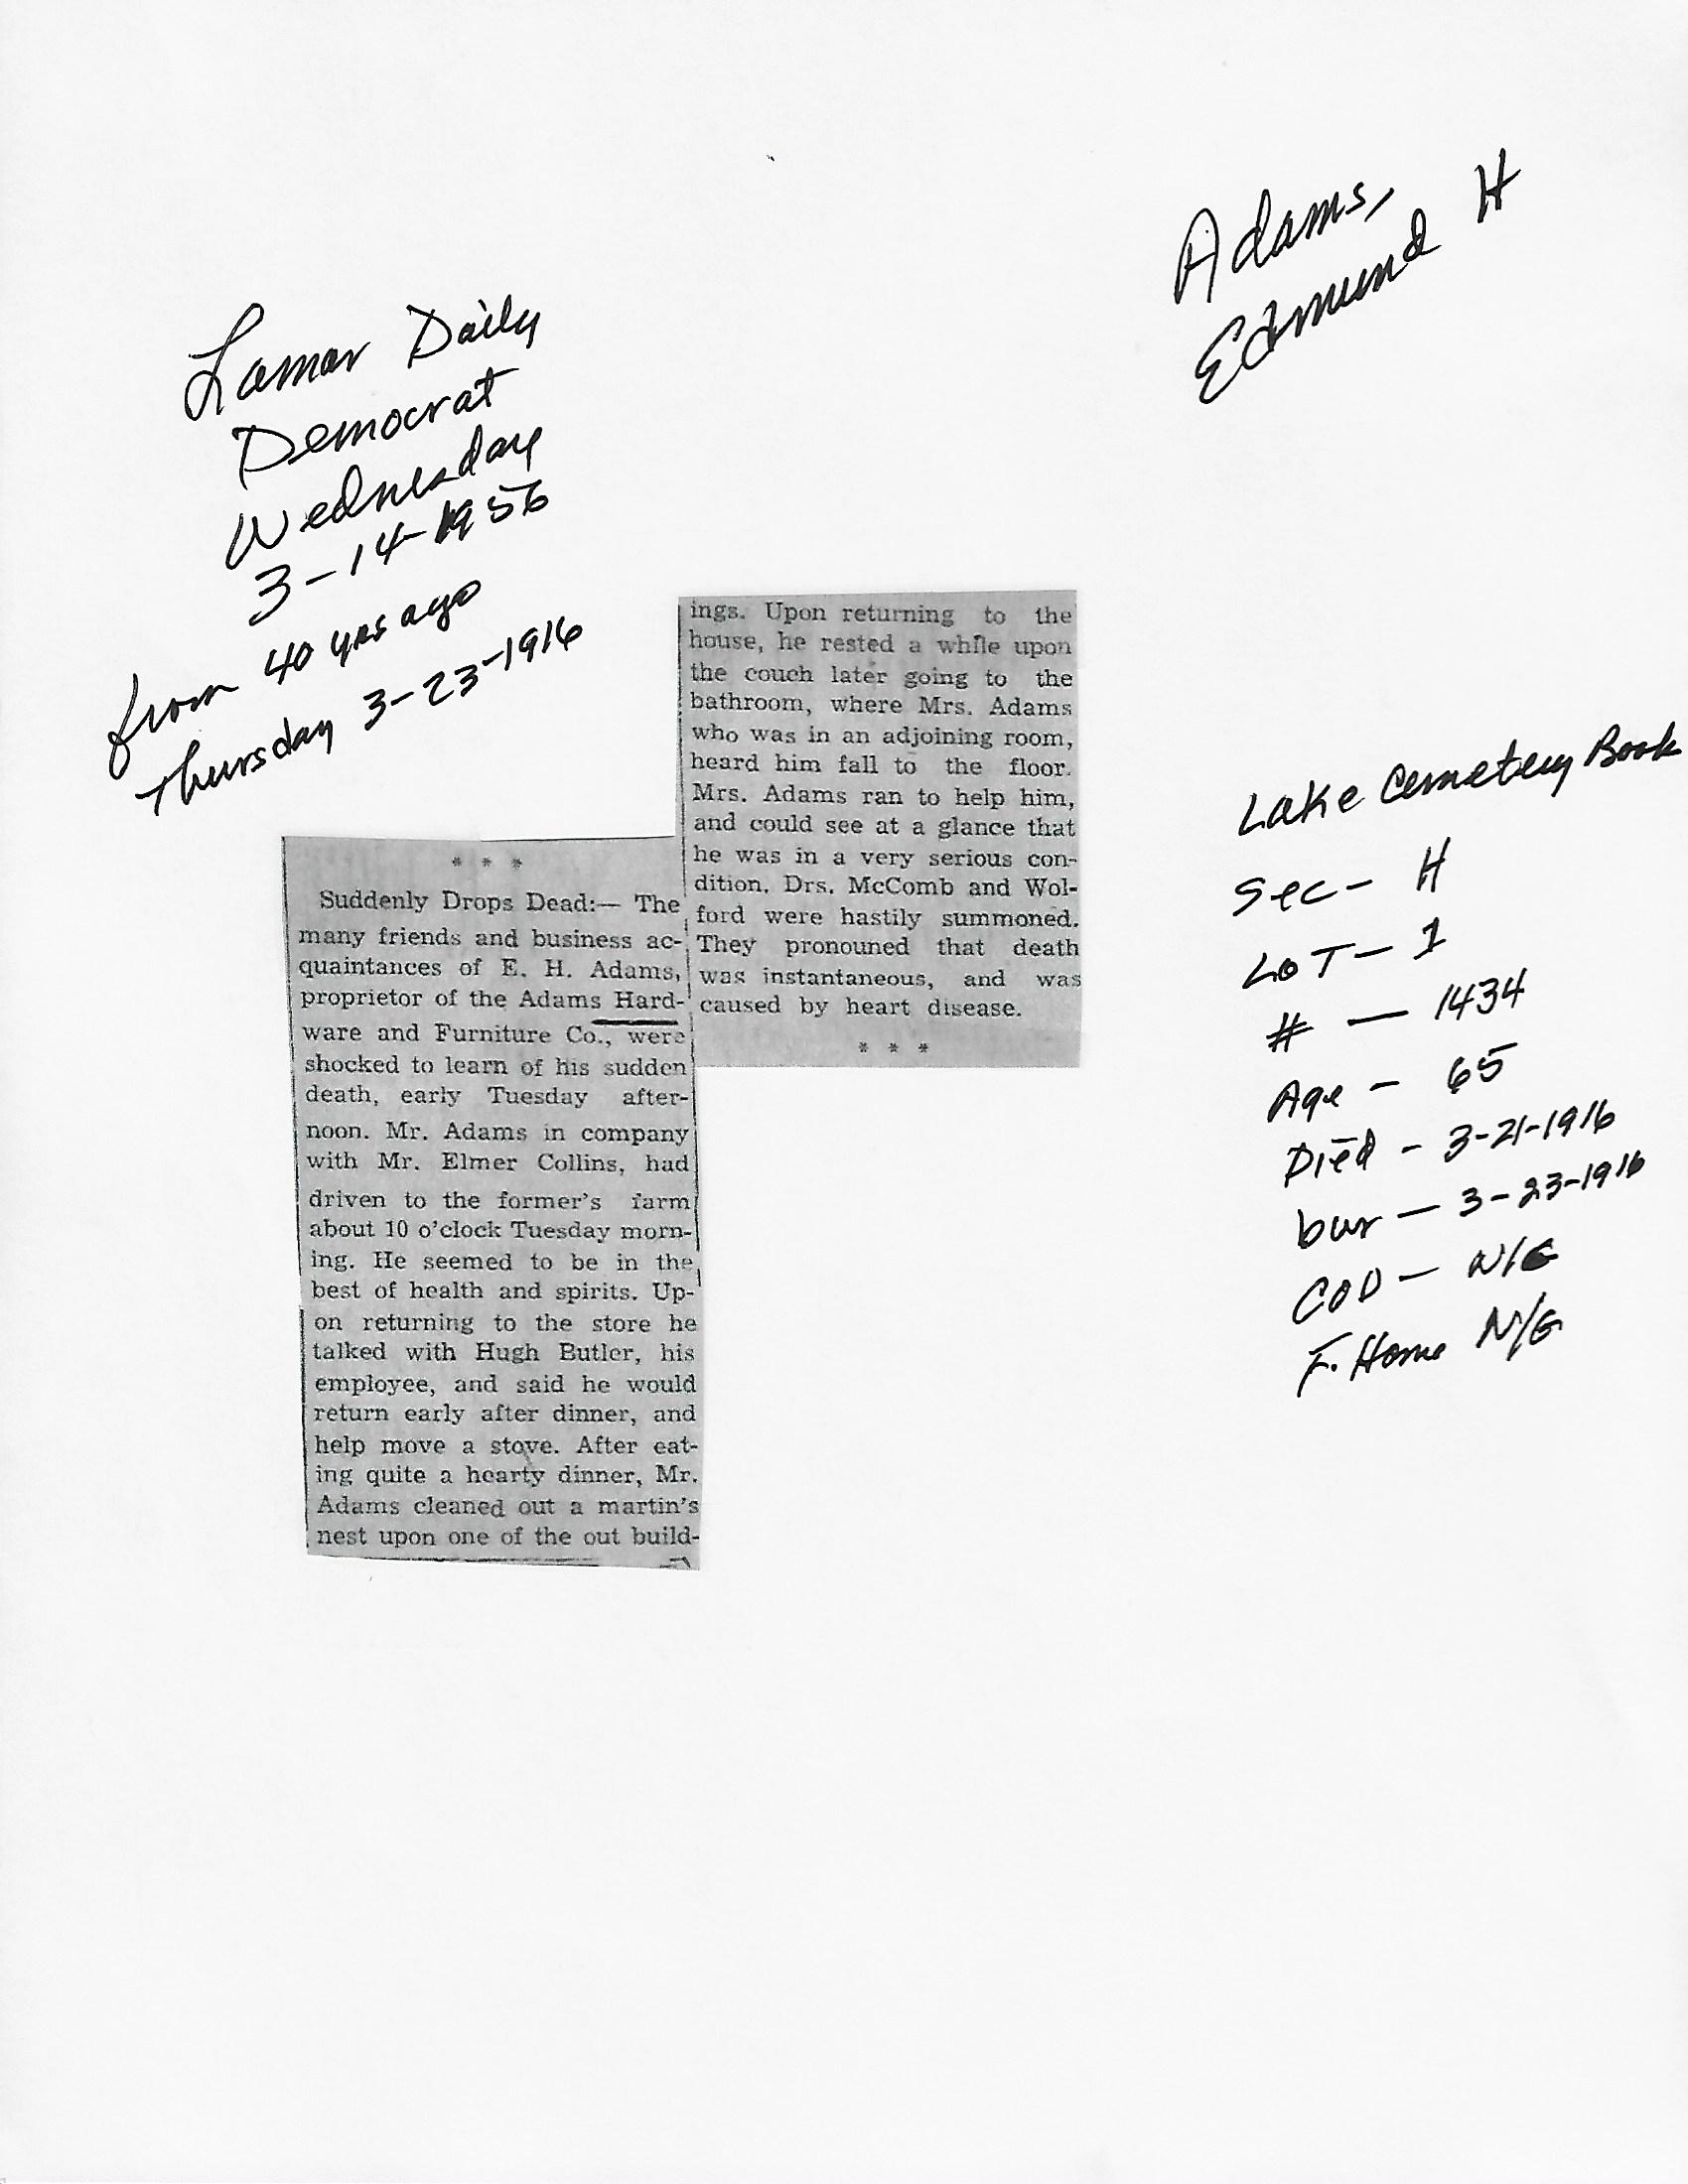 Adams,
Edmund H
Lamar Daily
Democrat
Wednesday
3-14-1956
from 40 yrs ago
Thursday 3-23-1916
* * *
Suddenly Drops Dead:— The
many friends and business ac-
quaintances of E. H. Adams,
proprietor of the Adams Hard-
ware and Furniture Co., were
shocked to learn of his sudden
death, early Tuesday after-
noon. Mr. Adams in company
with Mr. Elmer Collins, had
driven to the former's farm
about 10 o'clock Tuesday morn-
ing. He seemed to be in the
best of health and spirits. Up-
on returning to the store he
talked with Hugh Butler, his
employee, and said he would
return early after dinner, and
help move a stove. After eat-
ing quite a hearty dinner, Mr.
Adams cleaned out a martin's
nest upon one of the out build-
ings. Upon returning to the
house, he rested a while upon
the couch later going to the
bathroom, where Mrs. Adams
who was in an adjoining room,
heard him fall to the floor.
Mrs. Adams ran to help him,
and could see at a glance that
he was in a very serious con-
dition. Drs. McComb and Wol-
ford were hastily summoned.
They pronouned that death
was instantaneous, and was
caused by heart disease.
* * *
Lake Cemetery Book
Sec - H
LOT - 1
# — 1434
Age - 65
Died - 3-21-1916
bur — 3-23-1916
COD — N/G
F. Home N/G